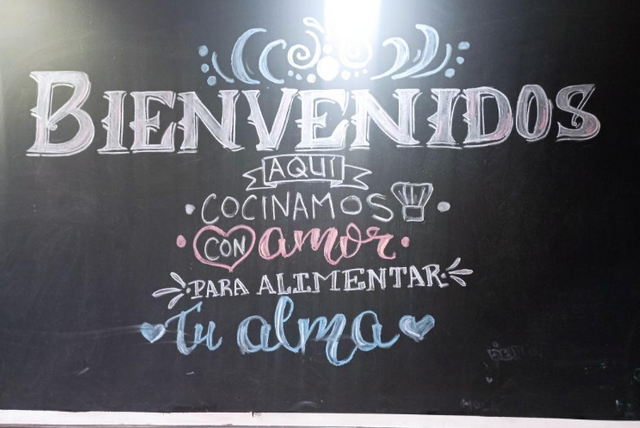 BIENVENIDOS
AQUI
COCINAMOS
CON amor
PARA ALIMENTAR
tu alma